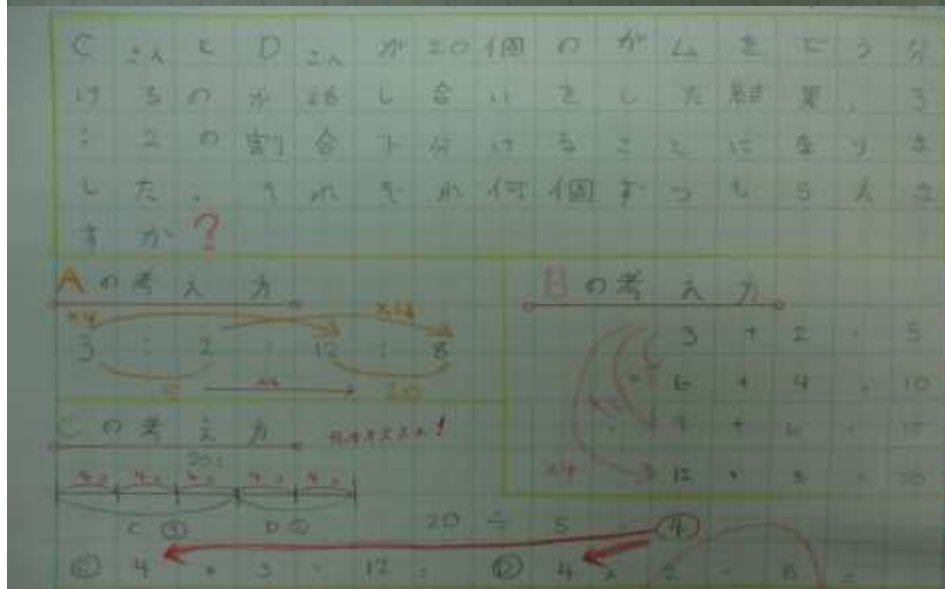 CさんとDさんが20個のガムをどう分
けるのか話し合いをした結果、3
:2の割合で分けることになりま
した。それぞれ何個ずつもらえま
すか?
Aの考え方
×4
3 : 2 = 12 : 8
5 20
Bの考え方
3 + 2 = 5
6 + 4 = 10
9 + 6 = 15
×4 12 + 8 = 20
Cの考え方
20こ
4こ 4こ 4こ 4こ 4こ
C③ D②
20 ÷ 5 = ④
Ⓒ 4 × 3 = 12こ Ⓓ 4 × 2 = 8こ